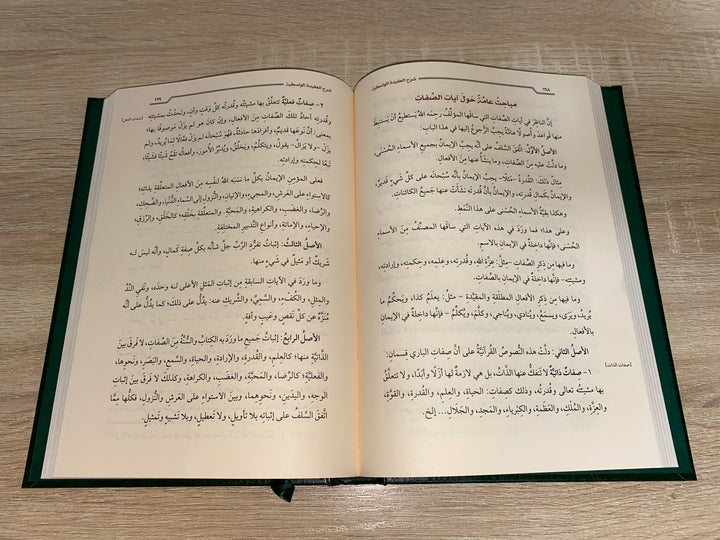 ١٦٨
شرح العقيدة الواسطية
مباحث عامة حول آيات الصفات
إنَّ الناظرَ في آياتِ الصفاتِ التي ساقَها المؤلِّفُ رحمه اللهُ يستطيعُ أنْ يستنبطَ
منها قواعدَ وأصولًا هامَّةً يجبُ الرجوعُ إليها في هذا البابِ:
الأصلُ الأوَّلُ: اتَّفقَ السَّلفُ على أنَّه يجبُ الإيمانُ بجميعِ الأسماءِ الحُسْنى،
وما دلَّتْ عليه مِنَ الصِّفاتِ، وما ينشأُ عنها مِنَ الأفعالِ.
مثالُ ذلكَ: القدرةُ –مثلًا– يجبُ الإيمانُ بأنَّه سبحانه على كلِّ شيءٍ قديرٌ،
والإيمانُ بكمالِ قدرتِه، والإيمانُ بأنَّ قدرتَه نشأتْ عنها جميعُ الكائناتِ.
وهكذا بقيَّةُ الأسماءِ الحُسنى على هذا النَّمَطِ.
وعلى هذا؛ فما وردَ في هذه الآياتِ التي ساقَها المصنِّفُ مِنَ الأسماءِ
الحُسْنى؛ فإنَّها داخلةٌ في الإيمانِ بالاسمِ.
وما فيها مِن ذِكرِ الصِّفاتِ –مثلُ: عِزَّةِ اللهِ، وقُدرتِه، وعِلمِه، وحِكمتِه، وإرادتِه،
ومشيئتِه– فإنَّها داخلةٌ في الإيمانِ بالصِّفاتِ.
وما فيها مِن ذِكرِ الأفعالِ المطلقةِ والمقيَّدةِ – مثلُ: يعلمُ كذا، ويَحكُمُ ما
يُريدُ، ويَرى، ويسمعُ، ويُنادي، ويُناجي، وكلَّمَ، ويُكلِّمُ – فإنَّها داخلةٌ في الإيمانِ
بالأفعالِ.
الأصلُ الثاني: دلَّتْ هذه النُّصوصُ القرآنيَّةُ على أنَّ صفاتِ الباري قِسمانِ:
[صفات الذات]
١– صفاتٌ ذاتيَّةٌ لا تَنفكُّ عنها الذَّاتُ، بل هي لازمةٌ لها أزَلًا وأبدًا، ولا تتعلَّقُ
بها مشيئتُه تعالى وقُدرتُه، وذلك كصفاتِ: الحياةِ، والعلمِ، والقدرةِ، والقوَّةِ،
والعِزَّةِ، والمُلكِ، والعَظَمةِ، والكِبرياءِ، والمَجدِ، والجَلالِ... إلخ.
شرح العقيدة الواسطية
١٦٩
٢– صفاتٌ فعليَّةٌ تتعلَّقُ بها مشيئتُه وقُدرتُه كلَّ وقتٍ وآنٍ، وتَحدُثُ بمشيئتِه
وقُدرتِه آحادُ تلكَ الصِّفاتِ مِنَ الأفعالِ، وإنْ كانَ هو لم يَزَلْ موصوفًا بها
بمعنى: أنَّ نوعَها قديمٌ، وأفرادَها حادثةٌ، فهو سُبحانَه لم يَزَلْ فعَّالًا لِما يُريدُ، ولم
يَزَلْ –ولا يَزالُ– يقولُ، ويتكلَّمُ، ويَخلُقُ، ويُدبِّرُ الأُمورَ، وأفعالُه تقعُ شيئًا فشيئًا،
تبعًا لحِكمتِه وإرادتِه.
فعلى المؤمنِ الإيمانُ بكلِّ ما نَسبَه اللهُ لنفسِه مِنَ الأفعالِ المتعلِّقةِ بذاتِه؛
كالاستواءِ على العَرشِ، والمجيءِ، والإتيانِ، والنُّزولِ إلى السَّماءِ الدُّنيا، والضَّحِكِ،
والرِّضا، والغضَبِ، والكراهيةِ، والمَحبَّةِ. والمتعلِّقةِ بخلقِه؛ كالخَلقِ، والرِّزقِ،
والإحياءِ، والإماتةِ، وأنواعِ التَّدبيرِ المختلفةِ.
الأصلُ الثالثُ: إثباتُ تفرُّدِ الرَّبِّ جلَّ شأنُه بكلِّ صفةِ كمالٍ، وأنَّه ليسَ له
شَريكٌ أو مَثيلٌ في شيءٍ منها.
وما وردَ في الآياتِ السابقةِ مِن إثباتِ المَثَلِ الأعلى له وحدَه، ونَفيِ النِّدِّ
والمِثلِ، والكُفْءِ، والسَّمِيِّ، والشَّريكِ عنه: يدلُّ على ذلكَ؛ كما يدلُّ على أنَّه
مُنزَّهٌ عن كلِّ نقصٍ وعيبٍ وآفةٍ.
الأصلُ الرابعُ: إثباتُ جميعِ ما وردَ به الكتابُ والسُّنَّةُ مِنَ الصِّفاتِ، لا فرقَ بينَ
الذَّاتيَّةِ منها؛ كالعِلمِ، والقُدرةِ، والإرادةِ، والحياةِ، والسَّمعِ، والبَصَرِ، ونحوِها،
والفعليَّةِ؛ كالرِّضا، والمَحبَّةِ، والغضَبِ، والكراهةِ، وكذلك لا فرقَ بينَ إثباتِ
الوَجهِ، واليدَينِ، ونحوِهما، وبينَ الاستواءِ على العَرشِ والنُّزولِ، فكلُّها ممَّا
اتَّفقَ السَّلفُ على إثباتِه بلا تأويلٍ، ولا تعطيلٍ، وبلا تَشبيهٍ وتمثيلٍ.